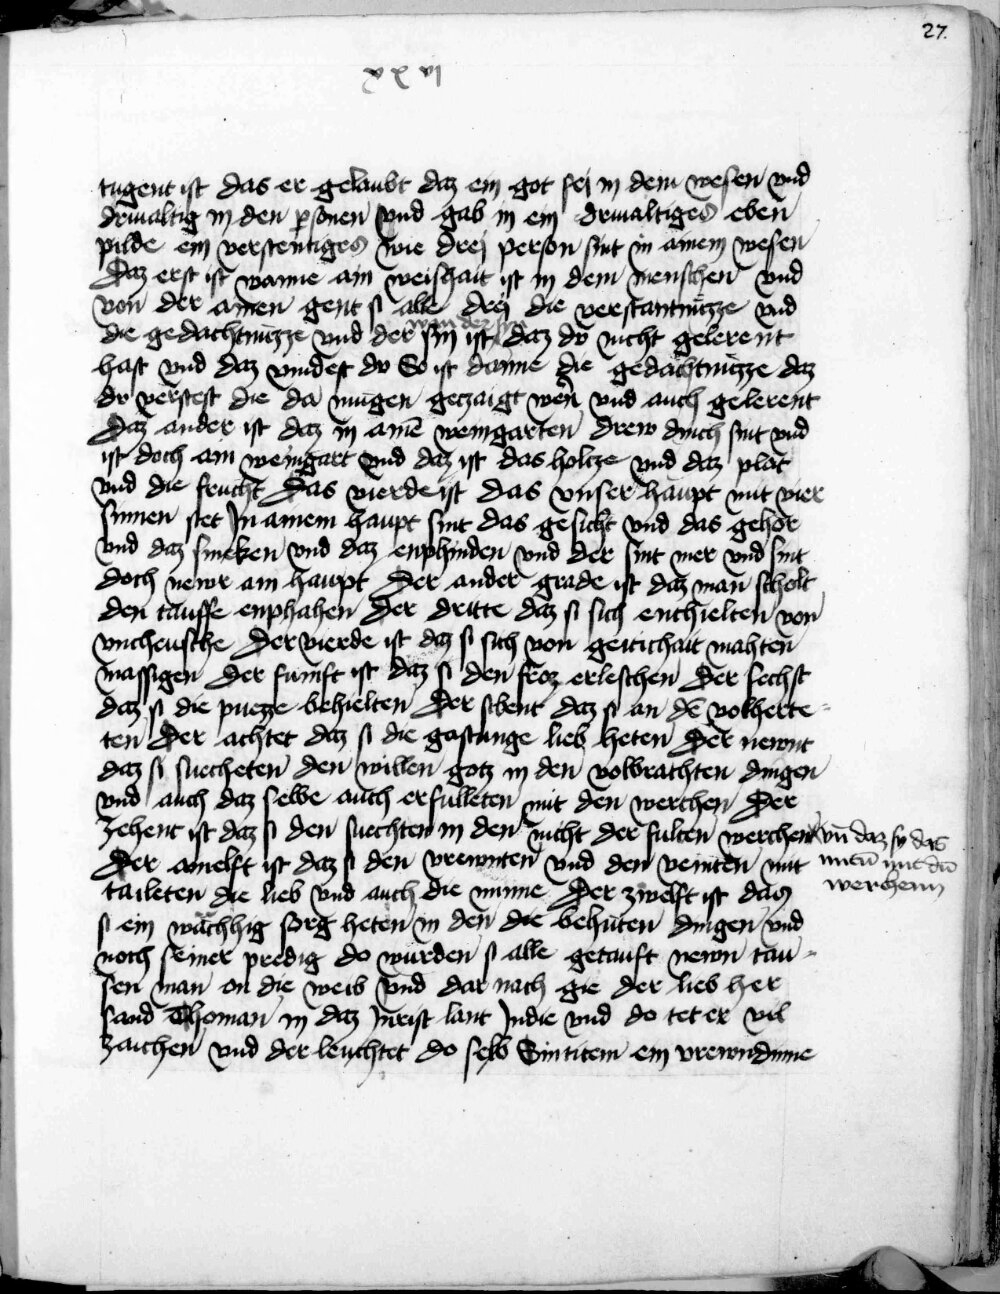 27.
xxvi
tugent ist das er gelaubt daz ein got sej in dem wesen vnd
driualtig in den personen vnd gab in ein driualtiges eben
pilde ein verstentiges wie drej person sint in ainem wesen
Daz erst ist wanne ain weishait ist in dem menschen vnd
von der ainen gent si alle drej die verstantnüzze vnd
die gedachtnüzze vnd der sin ist daz dv nicht gelerent
hast vnd daz vindest dv So ist danne die gedächtnüzze daz
dv verstest die da mugen geczaigt wern vnd auch gelerent
Daz ander ist daz in ainē weingarten drew dinch sint vnd
ist doch ain weingart vnd daz ist das holtze vnd daz plat
vnd die frucht Das vierde ist das vnser haupt mit vier
sinnen stet In ainem haupt sint das gesicht vnd das gehör
vnd daz smeken vnd daz enphinden vnd der sint mer vnd sint
doch newr ain haupt Der ander grade ist daz man scholt
den tauffe enphahen Der dritte daz si sich enthielten von
vncheusche Der vierde ist daz si sich von geitichait mahten
massigen Der fumft ist daz si den froz erleschen Der sechst
daz si die puezze behielten Der sibent daz si an dē volherte-
ten Der achtet daz si die gastunge lieb heten Der newnt
daz si suecheten den willen gotz in den volbrachten dingen
vnd auch daz selbe auch erfulleten mit den werchen Der
zehent ist daz si den suechten in den nicht der fulten werchen vn daz sy das
miten mit den
werchenn
Der ainelft ist daz si den vrewnten vnd den veinten mit
taileten die lieb vnd auch die minne Der zwelft ist daz
si ein wachhig sorg heten in den die behuten dingen vnd
noch seiner predig do wurden si alle getauft newn tau-
sen man on die weib vnd dar nach gie der lieb her
sand Thoman in daz Inrist lant Indie vnd do tet er vil
zaichen vnd der leuchtet do selb Sintitem ein vrewndinne